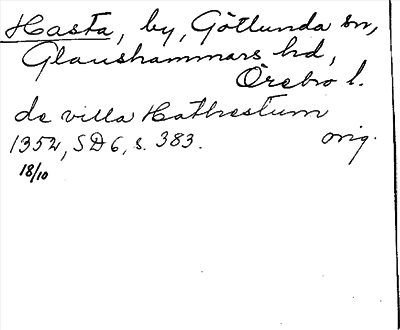 Hasta, by, Götlunda sn,
Glanshammars hd,
Örebro l.
de villa Hathrestum
1352, SD 6, s. 383. orig.
18/10